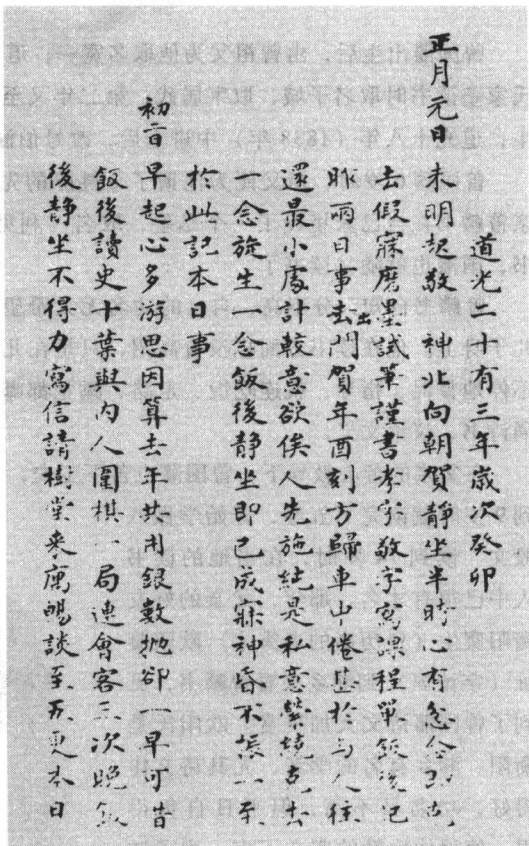 道光二十有三年歲次癸卯
正月元日
未明起敬 神北向朝賀靜坐半時心有
去假寐磨墨試筆謹書孝字敬字寫課程單飯後已
昨雨日事出門賀年酉刻方歸車中倦甚於與人往
還最小處計較意欲俟人先施純是私意縈
一念旋生一念飯後靜坐即已成寐神昏不
於此記本日事
初二
早起心多游思因算去年共用銀數拋卻一早可惜
飯後讀史十葉與內人圍棋一局連會客三次晚飯
後靜坐不得力寫信請樹堂來寓暢談至五更本日